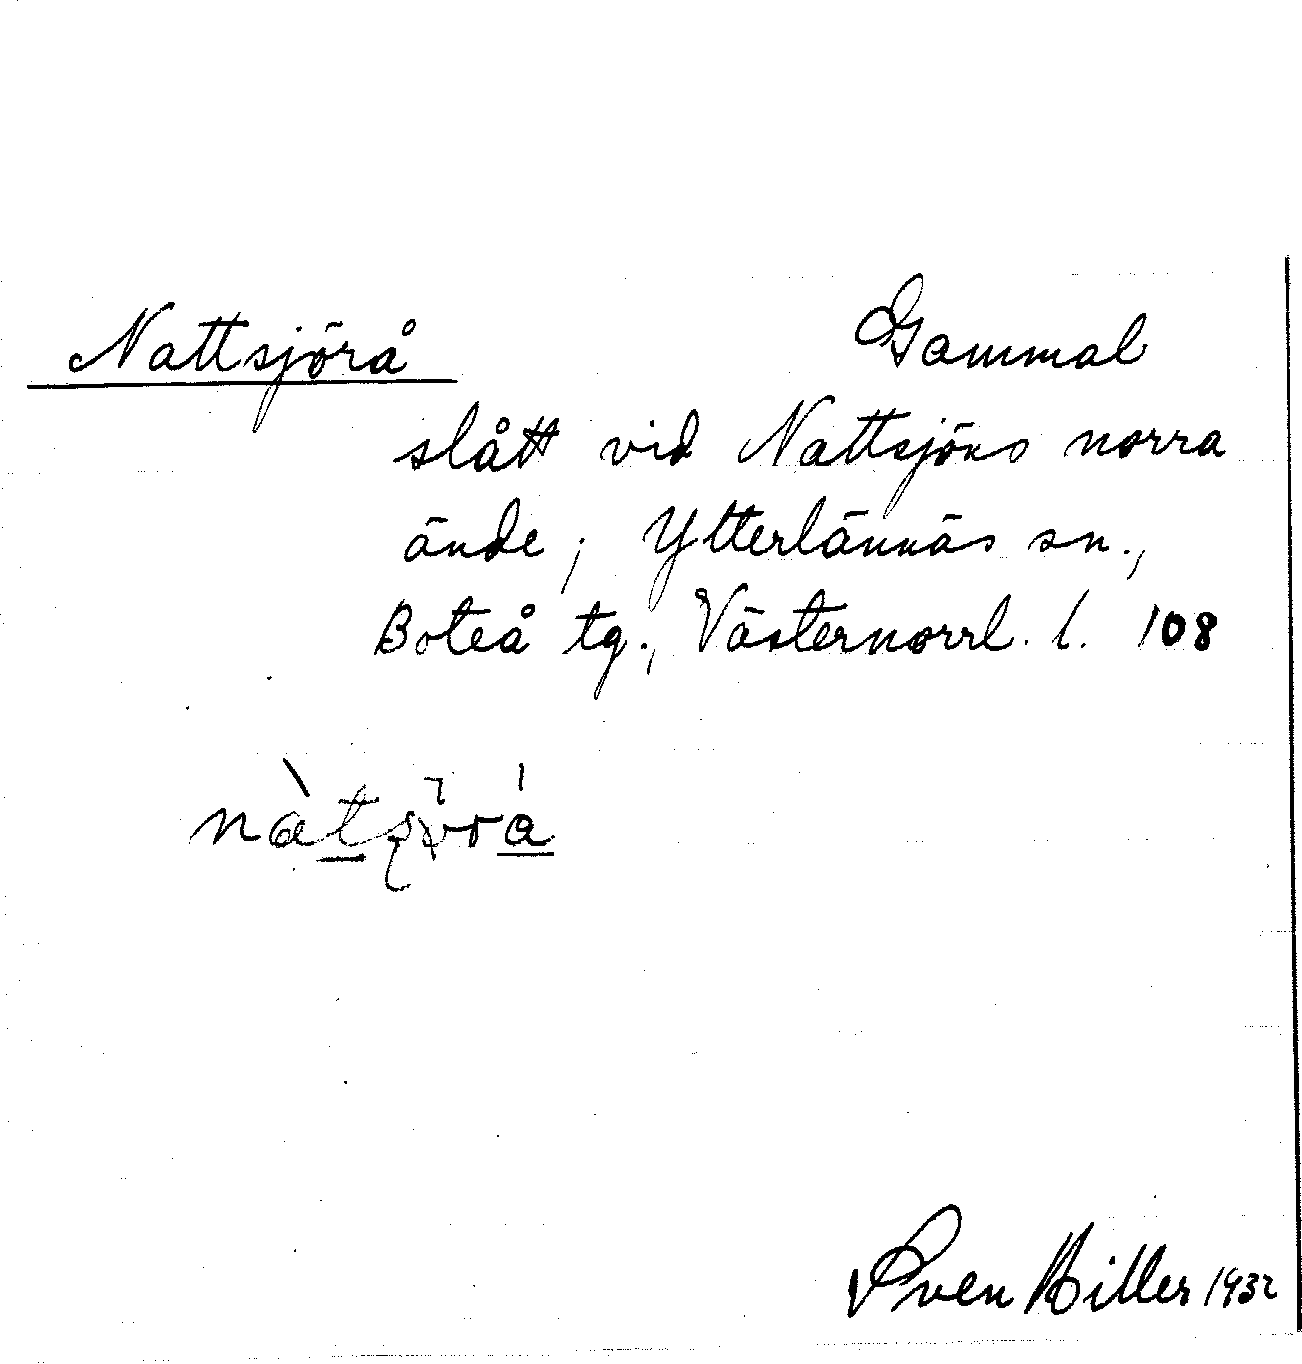 Nattsjörå Gammal
slått vid Nattsjöns norra
ände; Ytterlännäs sn.,
Boteå tg., Västernorrl. l. 108
Sven Hiller 1932